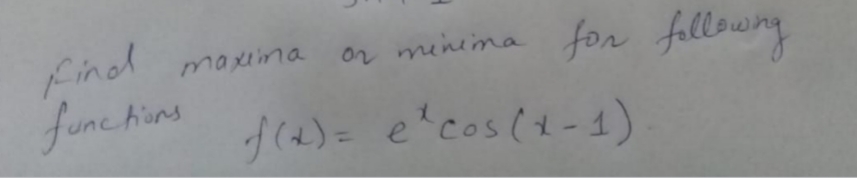 Find maxima or minima for following
functions f(x) = e^x cos(x-1).